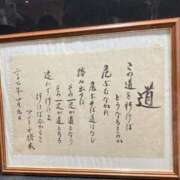 道
この道を行けば
どうなるものか
危ぶむなかれ
危ぶめば道はなし
踏み出せば
その一足が道となり
その一足が道となる
迷わず行けよ
行けばわかるさ
アントニオ猪木